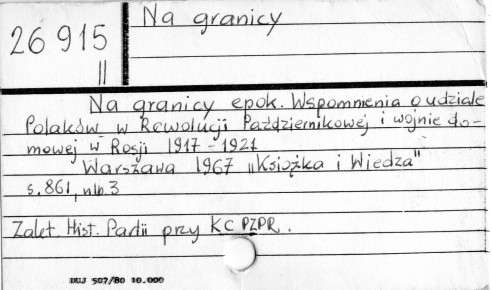 26 915
II
Na granicy
Na granicy epok. Wspomnienia o udziale
Polaków w Rewolucji Październikowej i wojnie do-
mowej w Rosji 1917-1921
Warszawa 1967 "Książka i Wiedza"
s. 861, nlb. 3
Zakł. Hist. Partii przy KC PZPR.
DUJ 507/80 10.000